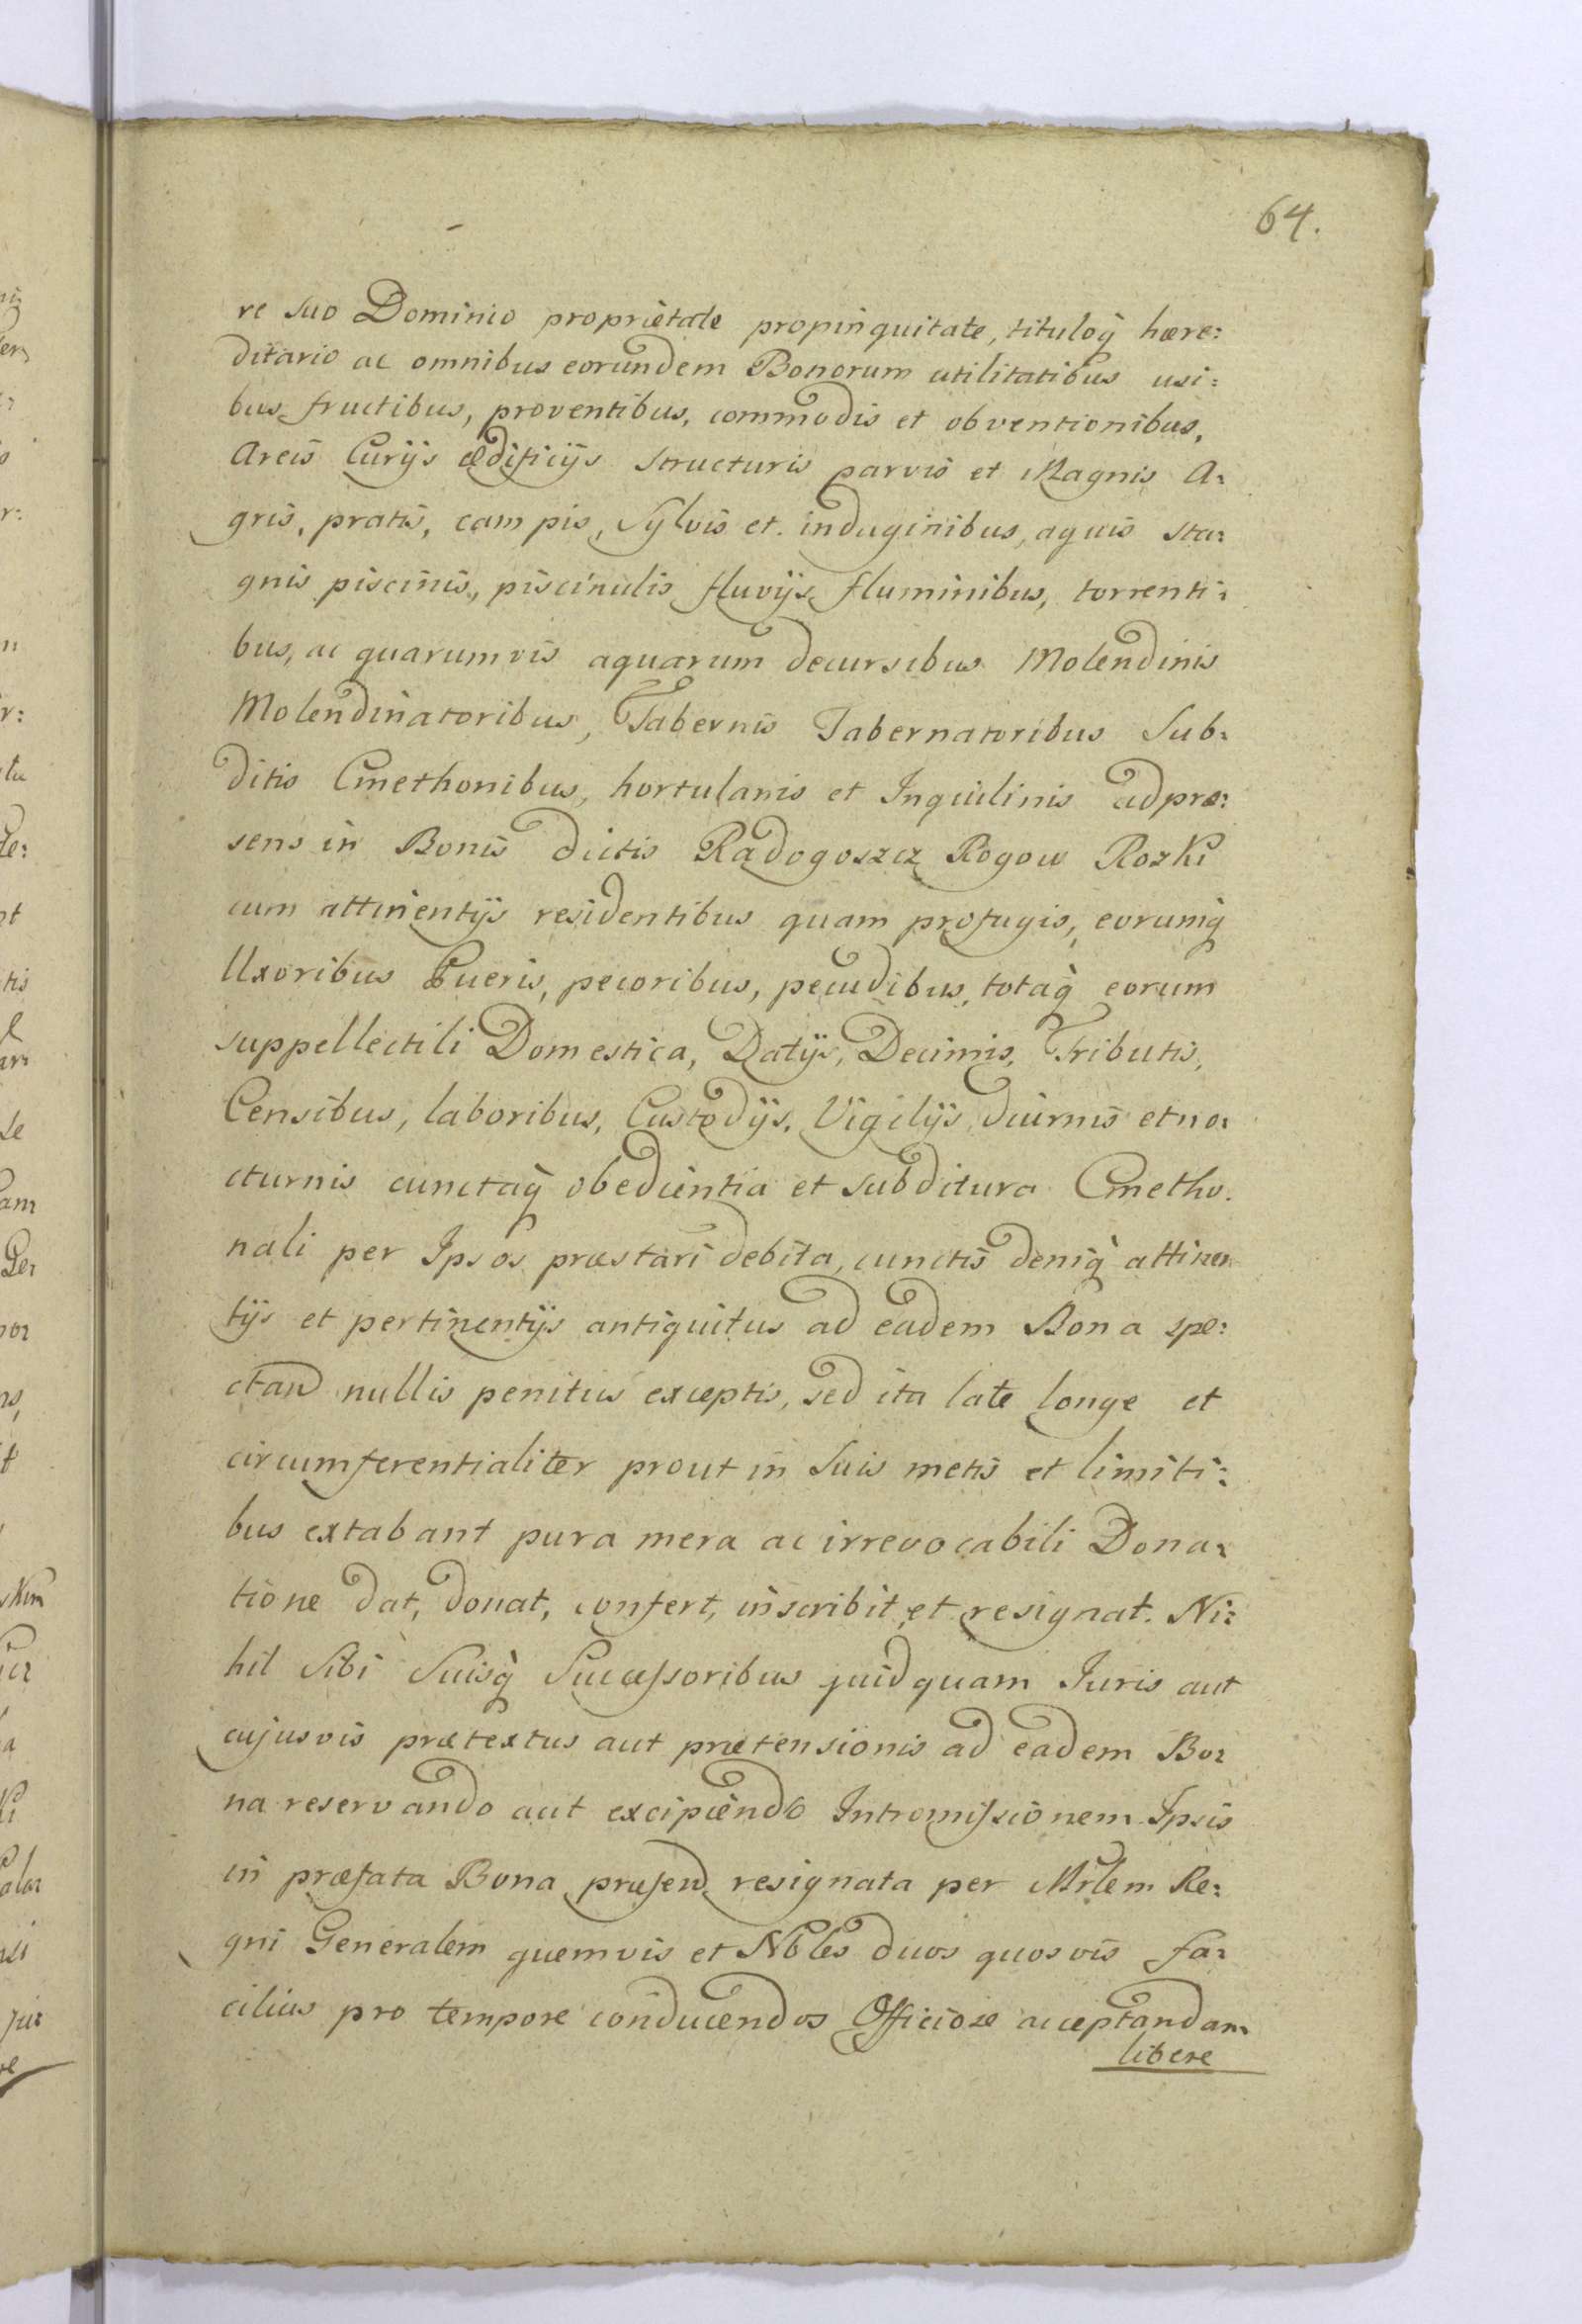 64.
re suo Dominio proprietate propinquitate, tituloq̀ hære:
ditario ac omnibus eorundem Bonorum utilitatibus usi:
bus fructibus, proventibus, commodis et obventionibus,
Areis Curijs ædificijs structuris parvis et Magnis A:
gris, pratis, campis, Sylvis et induginibus, aquis sta:
gnis piscinis, piscinulis fluvijs fluminibus, torrenti:
bus, ac quarumvis aquarum decursibus Molendinis
Molendinatoribus, Tabernis Tabernatoribus Sub:
ditis Cmethonibus, hortulanis et Inquilinis ad præ:
sens in Bonis dictis Radogoszcz Rogow Rozki
cum attinentijs residentibus quam profugis, eorumq̀
Uxoribus Pueris, pecoribus, pecudibus, totaq̀ eorum
suppellectili Domestica, Datijs, Decimis, Tributis,
Censibus, laboribus, Custodijs, Vigilijs, diurnis et no:
cturnis cunctaq̀ obedientia et subditura Cmetho:
nali per Ipsos præstari debita, cunctis deniq̀ attinen
tijs et pertinentijs antiquitus ad eadem Bona spe:
ctan nullis penitus exceptis, sed ita late longe et
circumferentialiter prout in Suis metis et limiti:
bus extabant pura mera ac irrevocabili Dona:
tione dat, donat, confert, inscribit, et resignat. Ni:
hil Sibi Suisq̀ Successoribus quidquam Juris aut
cujusvis prætextus aut prætensionis ad eadem Bo:
na reservando aut excipiendo Intromissionem Ipsis
in præfata Bona præsen resignata per Mrlem Re:
gni Generalem quemvis et Nbles duos quosvis fa:
cilius pro tempore conducendos Officiose acceptandam
libere